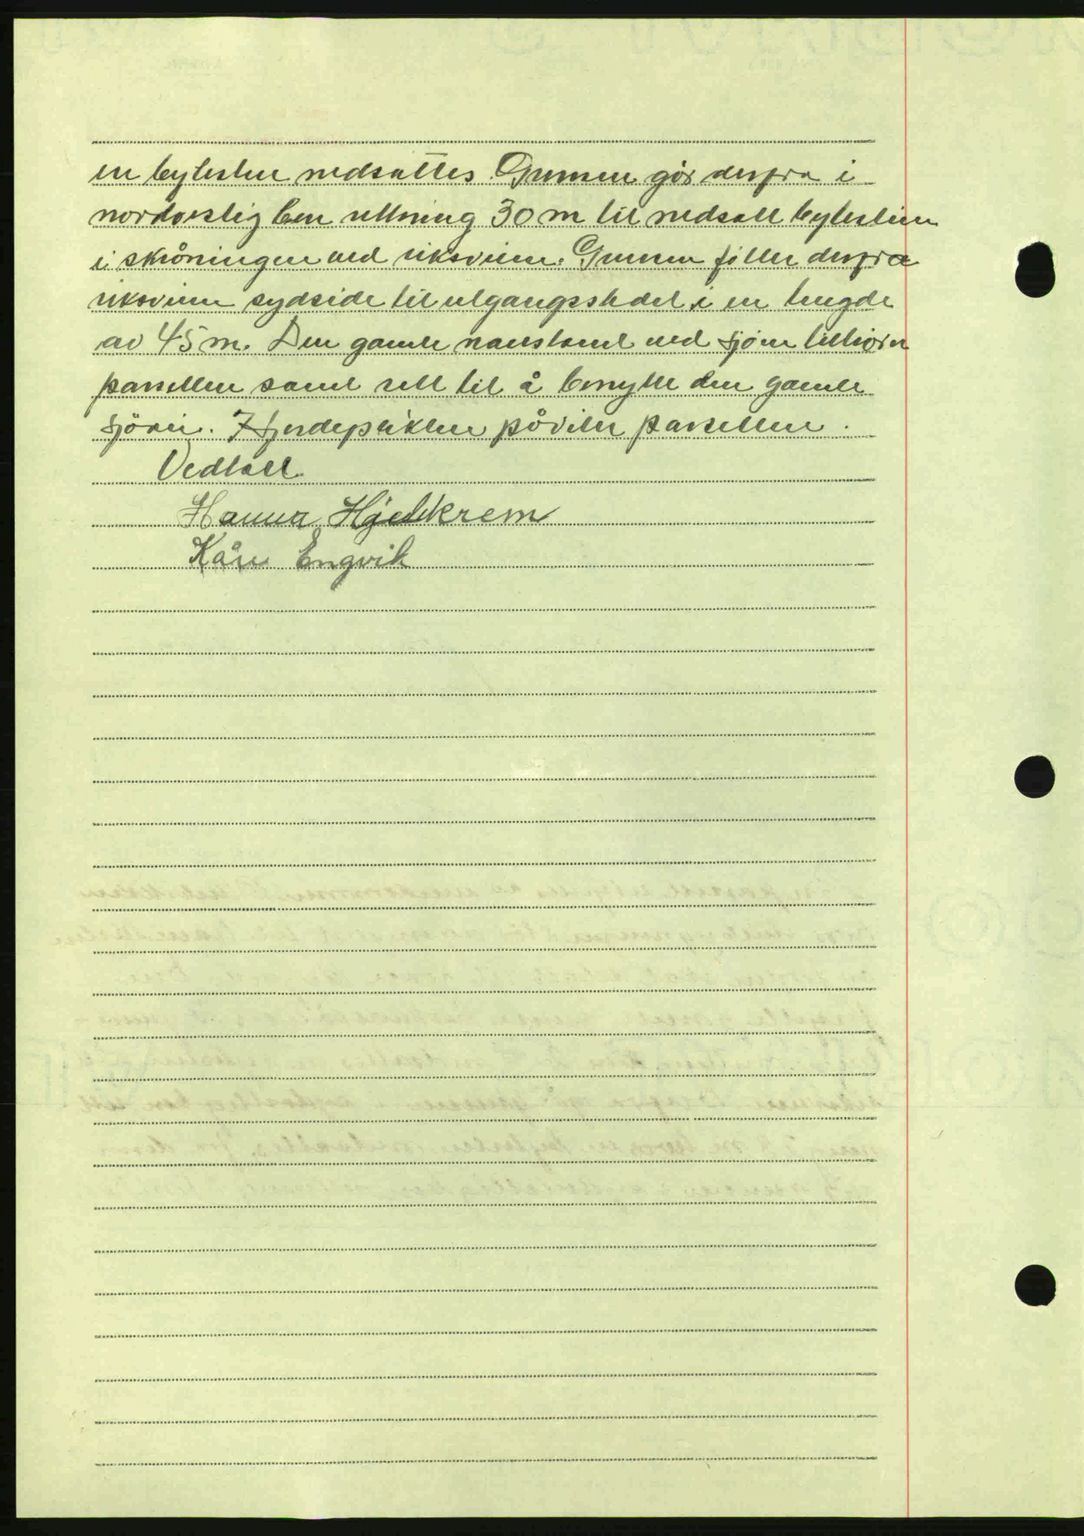 en bytesten nedsattes. Grensen går derfra i
nordvestlig ben retning 30 m til nedsatt bytesten
i skråningen ved riksveien. Grensen følger derfra
riksveiens sydside til utgangsstedet i en lengde
av 45 m. Den gamle nausttomt ved sjøen tilhører
parsellen samt rett til å benytte den gamle
sjövei. Gjerdeplikten påviler parsellen.
Vedtatt
Hanna Hjelkrem
Kåre Engvik